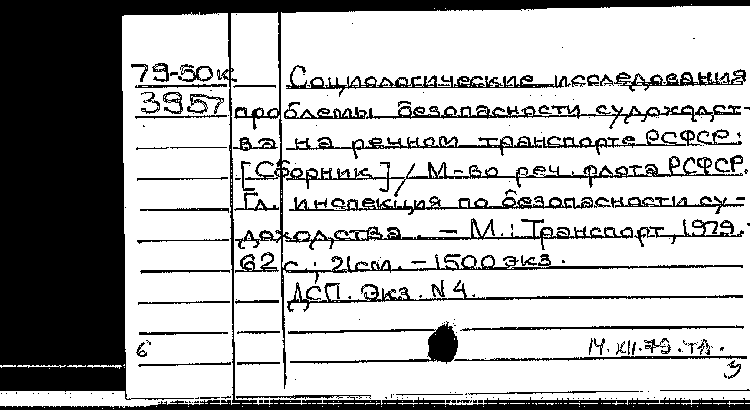 79-50к Социологические исследования
3957 проблемы безопасности судоходст-
ва на речном транспорте РСФСР:
[Сборник] / М-во реч. флота РСФСР.
Гл. инспекция по безопасности су-
доходства. - М.: Транспорт, 1979.-
62 с.; 21см. - 1500 экз.
ДСП. Экз. N 4.
6 14.XII.79.
3